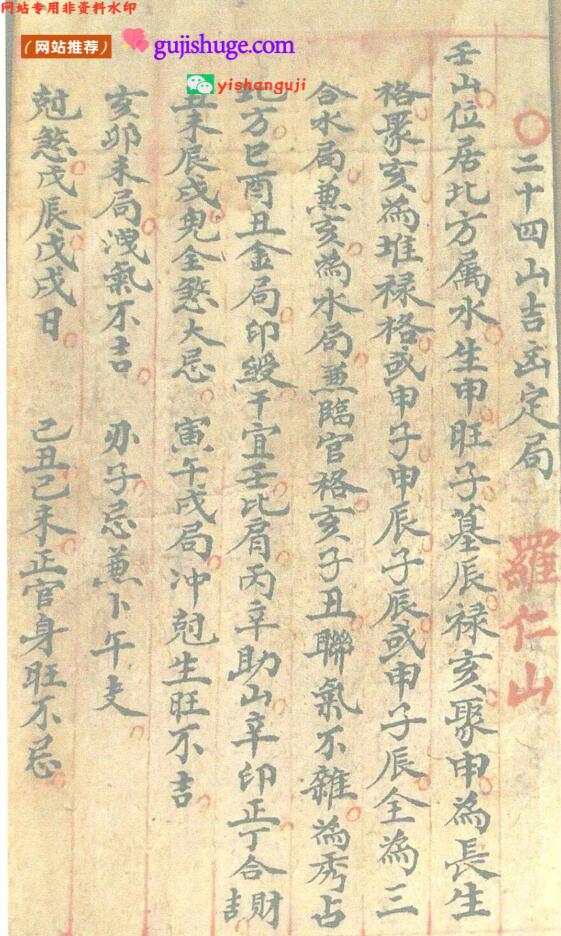 网站专用非资料水印
(网站推荐) gujishuge.com
yishanguji
二十四山吉凶定局 羅仁山
壬山位居北方属水生申旺子墓辰禄亥聚申為長生
格聚亥為堆禄格或申子申辰子辰或申子辰全為三
合水局兼亥為水局兼臨官格亥子丑聯氣不雜為秀占
北方巳酉丑金局印綬干宜壬比肩丙辛助山辛印正丁合財吉
丑未辰戌凶全煞大忌 寅午戌局冲尅生旺不吉
亥卯未局洩氣不吉 办子忌兼卜午支
尅煞戊辰戊戌日 己丑己未正官身旺不忌